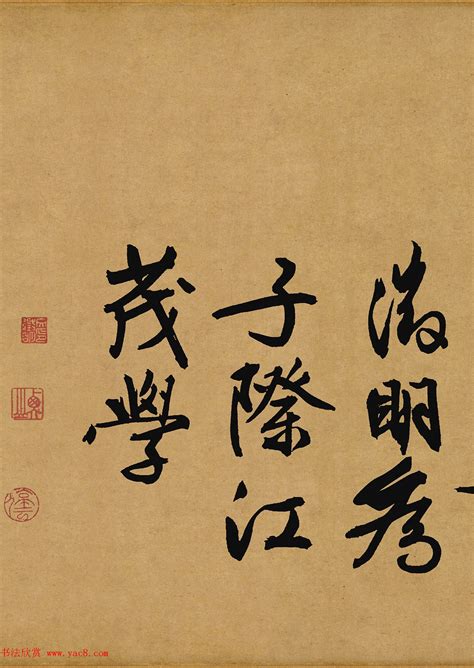 徵明為
子際江
茂學
书法欣赏 www.yac8.com